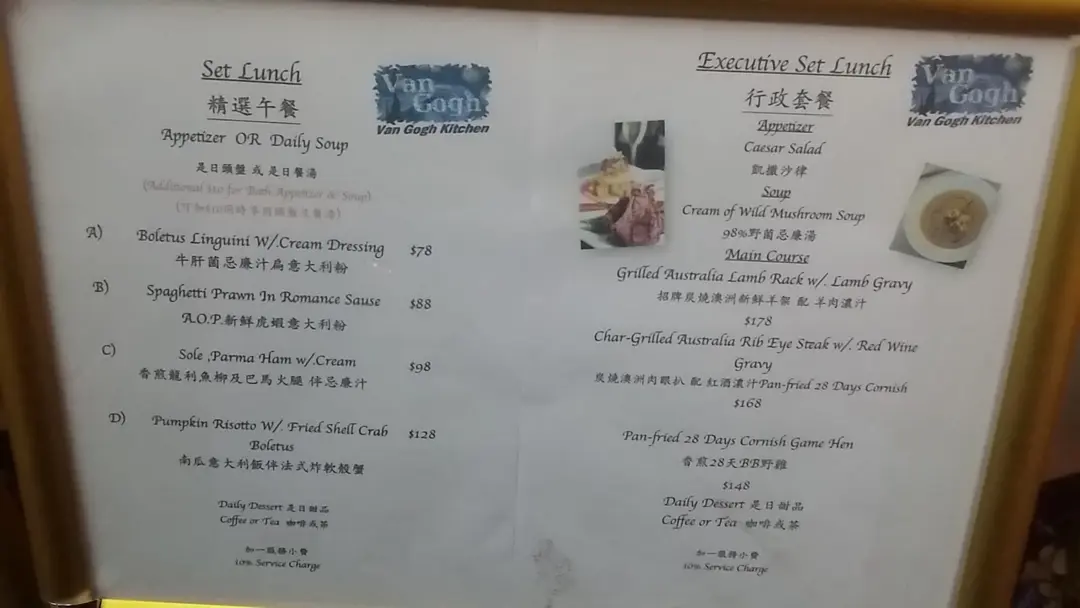 Set Lunch
精選午餐
Van Gogh
Van Gogh Kitchen
Appetizer OR Daily Soup
是日頭盤 或 是日餐湯
(Additional $10 for Both Appetizer & Soup)
A) Boletus Linguini W/.Cream Dressing $78
牛肝菌忌廉汁扁意大利粉
B) Spaghetti Prawn In Romance Sause $88
A.O.P.新鮮虎蝦意大利粉
C) Sole ,Parma Ham w/.Cream $98
香煎龍利魚柳及巴馬火腿 伴忌廉汁
D) Pumpkin Risotto W/. Fried Shell Crab $128
Boletus
南瓜意大利飯伴法式炸軟殼蟹
Daily Dessert 是日甜品
Coffee or Tea 咖啡或茶
加一服務小費
10% Service Charge
Executive Set Lunch
行政套餐
Van Gogh
Van Gogh Kitchen
Appetizer
Caesar Salad
凱撒沙律
Soup
Cream of Wild Mushroom Soup
98%野菌忌廉湯
Main Course
Grilled Australia Lamb Rack w/. Lamb Gravy
招牌炭燒澳洲新鮮羊架 配 羊肉濃汁
$178
Char-Grilled Australia Rib Eye Steak w/. Red Wine
Gravy
炭燒澳洲肉眼扒 配 紅酒濃汁Pan-fried 28 Days Cornish
$168
Pan-fried 28 Days Cornish Game Hen
香煎28天BB野雞
$148
Daily Dessert 是日甜品
Coffee or Tea 咖啡或茶
加一服務小費
10% Service Charge